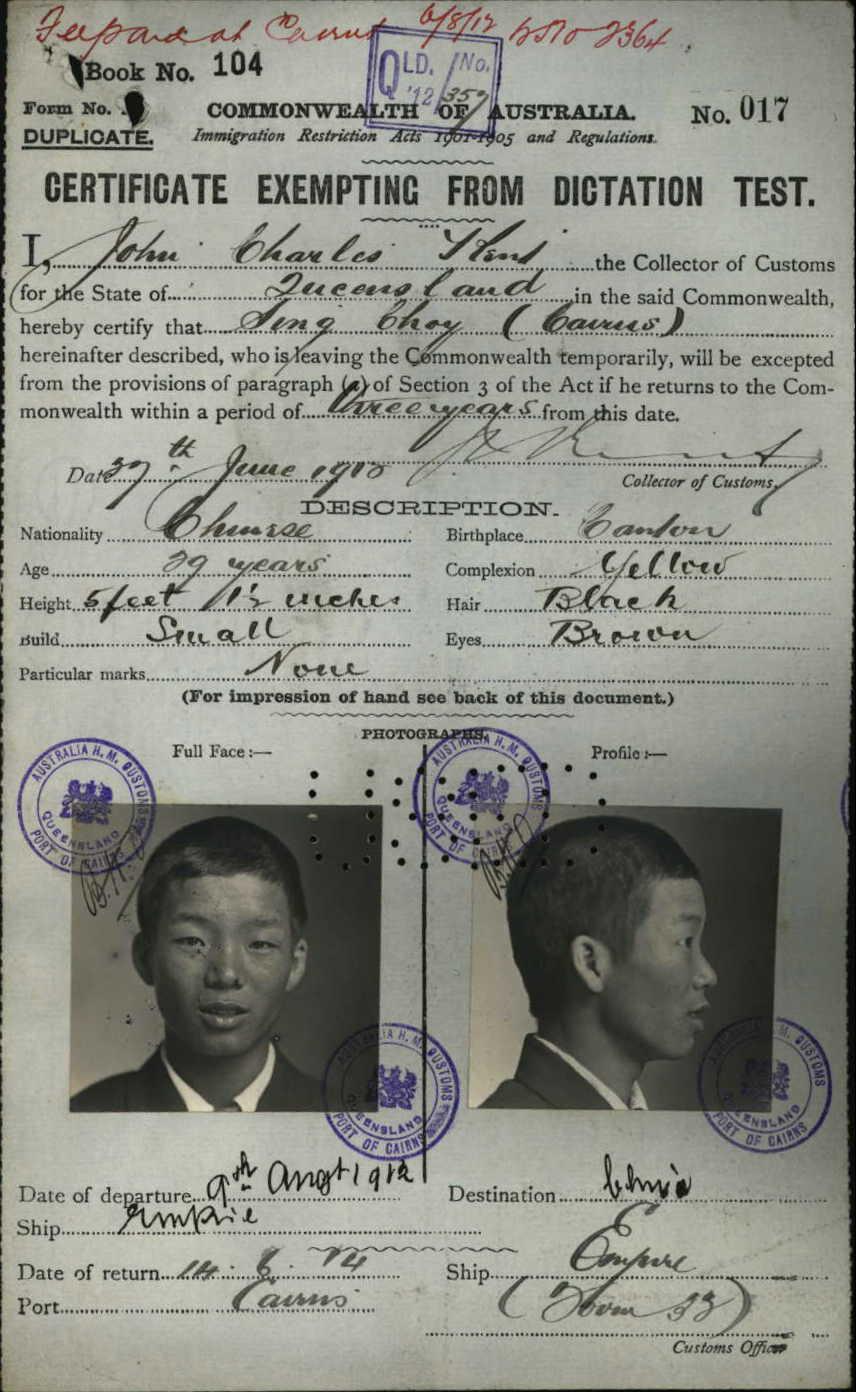 Fee paid at Cairns 6/8/12
Book No. 104
QLD. No.
'12 357
Form No.
COMMONWEALTH OF AUSTRALIA.
No. 017
DUPLICATE.
Immigration Restriction Acts 1901-1905 and Regulations.
CERTIFICATE EXEMPTING FROM DICTATION TEST.
I, John Charles Kent the Collector of Customs
for the State of Queensland in the said Commonwealth,
hereby certify that Sing Choy (Cairns)
hereinafter described, who is leaving the Commonwealth temporarily, will be excepted
from the provisions of paragraph (a) of Section 3 of the Act if he returns to the Com-
monwealth within a period of three years from this date.
Date 27th June 191
Collector of Customs.
DESCRIPTION.
Nationality Chinese
Birthplace Canton
Age 29 years
Complexion Yellow
Height 5 feet 1½ inches
Hair Black
Build Small
Eyes Brown
Particular marks None
(For impression of hand see back of this document.)
PHOTOGRAPHS.
Full Face :—
Profile :—
AUSTRALIA H. M. CUSTOMS
QUEENSLAND
PORT OF CAIRNS
AUSTRALIA H. M. CUSTOMS
QUEENSLAND
PORT OF CAIRNS
AUSTRALIA H. M. CUSTOMS
QUEENSLAND
PORT OF CAIRNS
AUSTRALIA H. M. CUSTOMS
QUEENSLAND
PORT OF CAIRNS
Date of departure 9th Augt 1912
Destination China
Ship Empire
Date of return 14. 6. 14
Ship Empire
Port Cairns
(Form 32)
Customs Officer